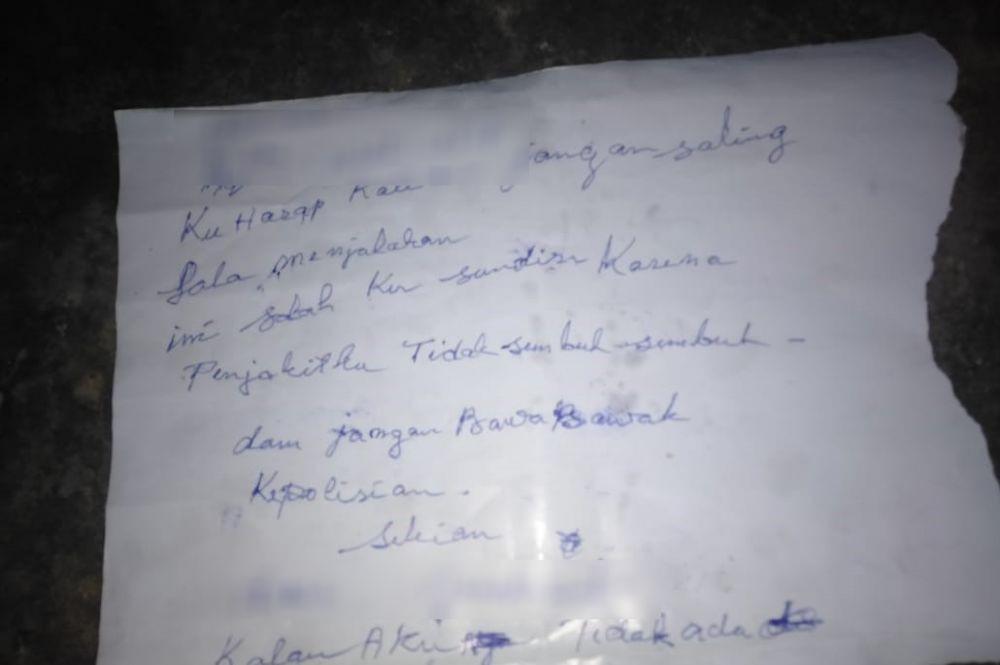 jangan saling
Ku Harap Kau
Sala menjalakan
ini salah Ku sendiri Karena
Penjakitku Tidak sembuh-sembuh -
dam jangan Bawa Bawak
Kepolisian.
sekian
Kalau Aku Tidak ada